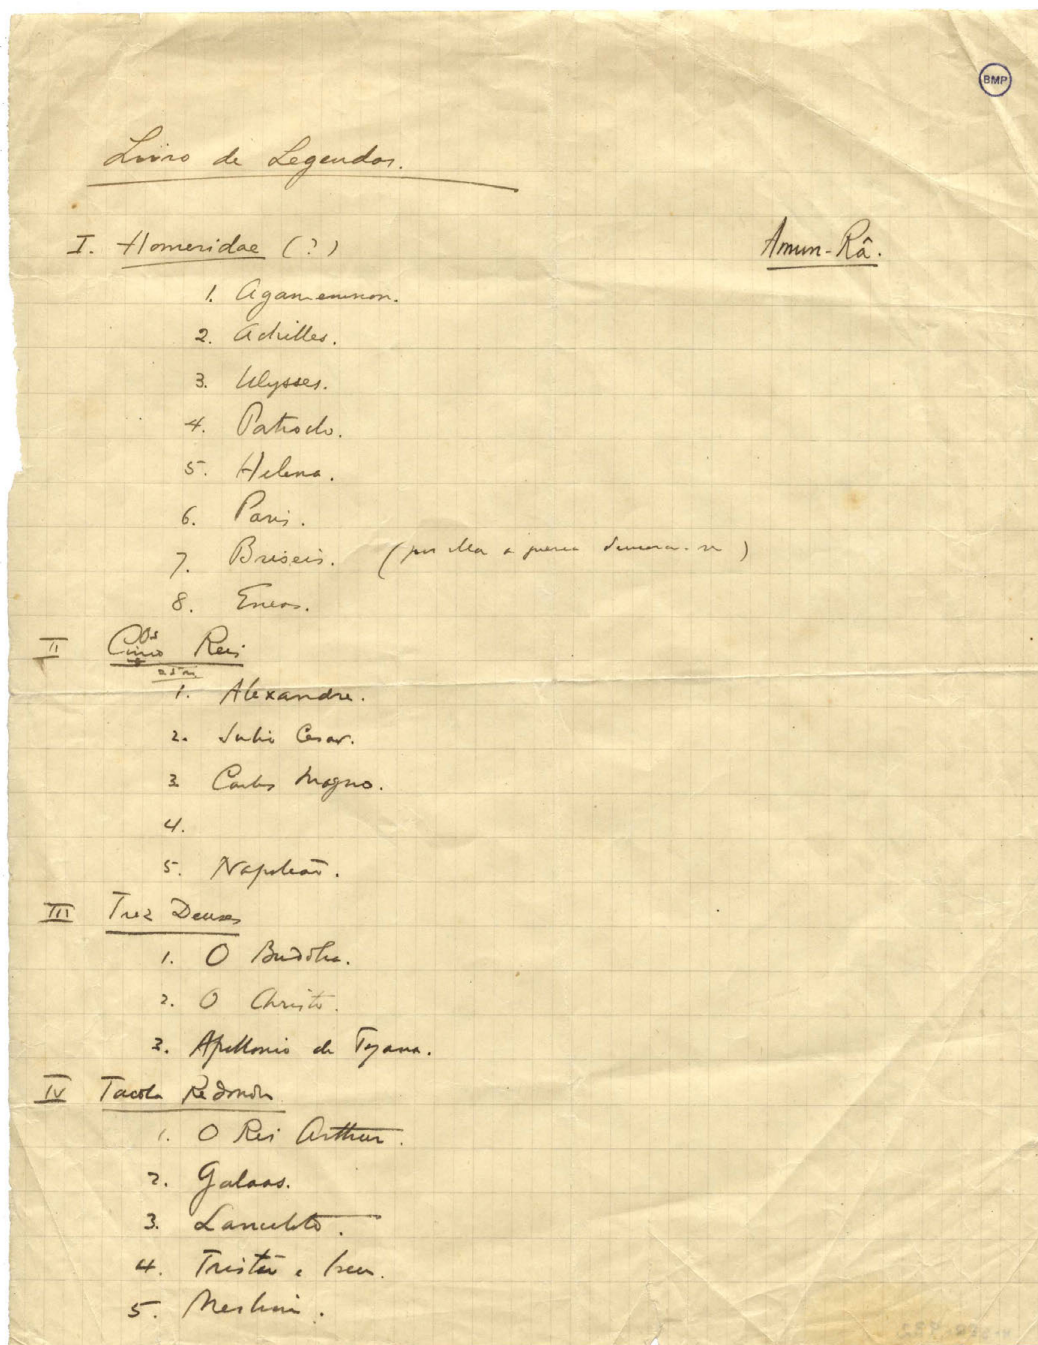 BMP
Livro de Legendas.
I. Homeridae (?)
Amun-Râ.
1. Agamemnon.
2. Achilles.
3. Ulysses.
4. Patroclo.
5. Helena.
6. Paris.
7. Briseis. (por ella a guerra demora-se)
8. Eneas.
II Os Cinco Reis
1. Alexandre.
2. Julio Cesar.
3 Carlos Magno.
4.
5. Napoleão.
III Trez Deuses
1. O Buddha.
2. O Christo.
3. Apollonio de Tyana.
IV Tavola Redonda
1. O Rei Arthur.
2. Galaas.
3. Lancelote.
4. Tristão e Iseu.
5. Merlim.